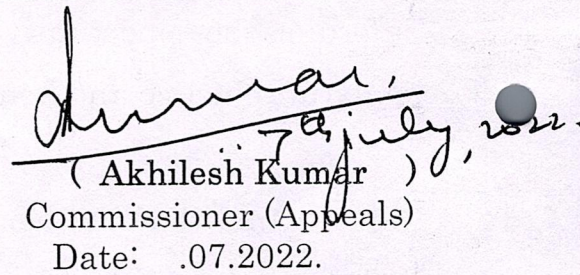 7th july, 2022.
( Akhilesh Kumar )
Commissioner (Appeals)
Date: .07.2022.